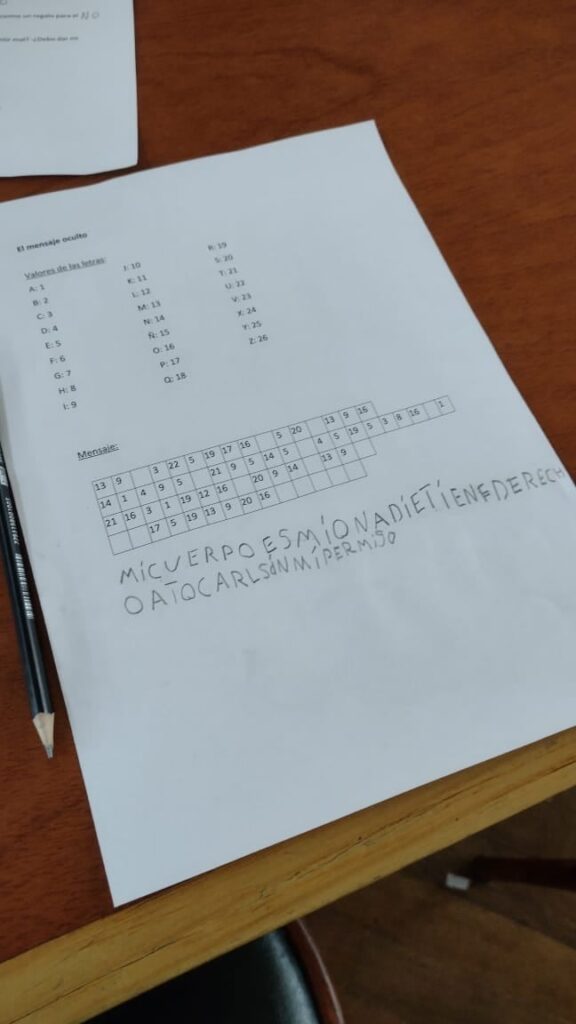 un regalo para el
mal? -¿Debo dar mi
El mensaje oculto
Valores de las letras:
A: 1
B: 2
C: 3
D: 4
E: 5
F: 6
G: 7
H: 8
I: 9
J: 10
K: 11
L: 12
M: 13
N: 14
Ñ: 15
O: 16
P: 17
Q: 18
R: 19
S: 20
T: 21
U: 22
V: 23
X: 24
Y: 25
Z: 26
Mensaje:
13 9 3 22 5 19 17 16 5 20 13 9 16
14 1 4 9 5 21 9 5 14 5 4 5 19 5 3 8 16 1
21 16 3 1 19 12 16 20 9 14 13 9
17 5 19 13 9 20 16
MíCUERPO ESMÍONADIETIENEDERECH
OATOCARLSóNMíPERMISO